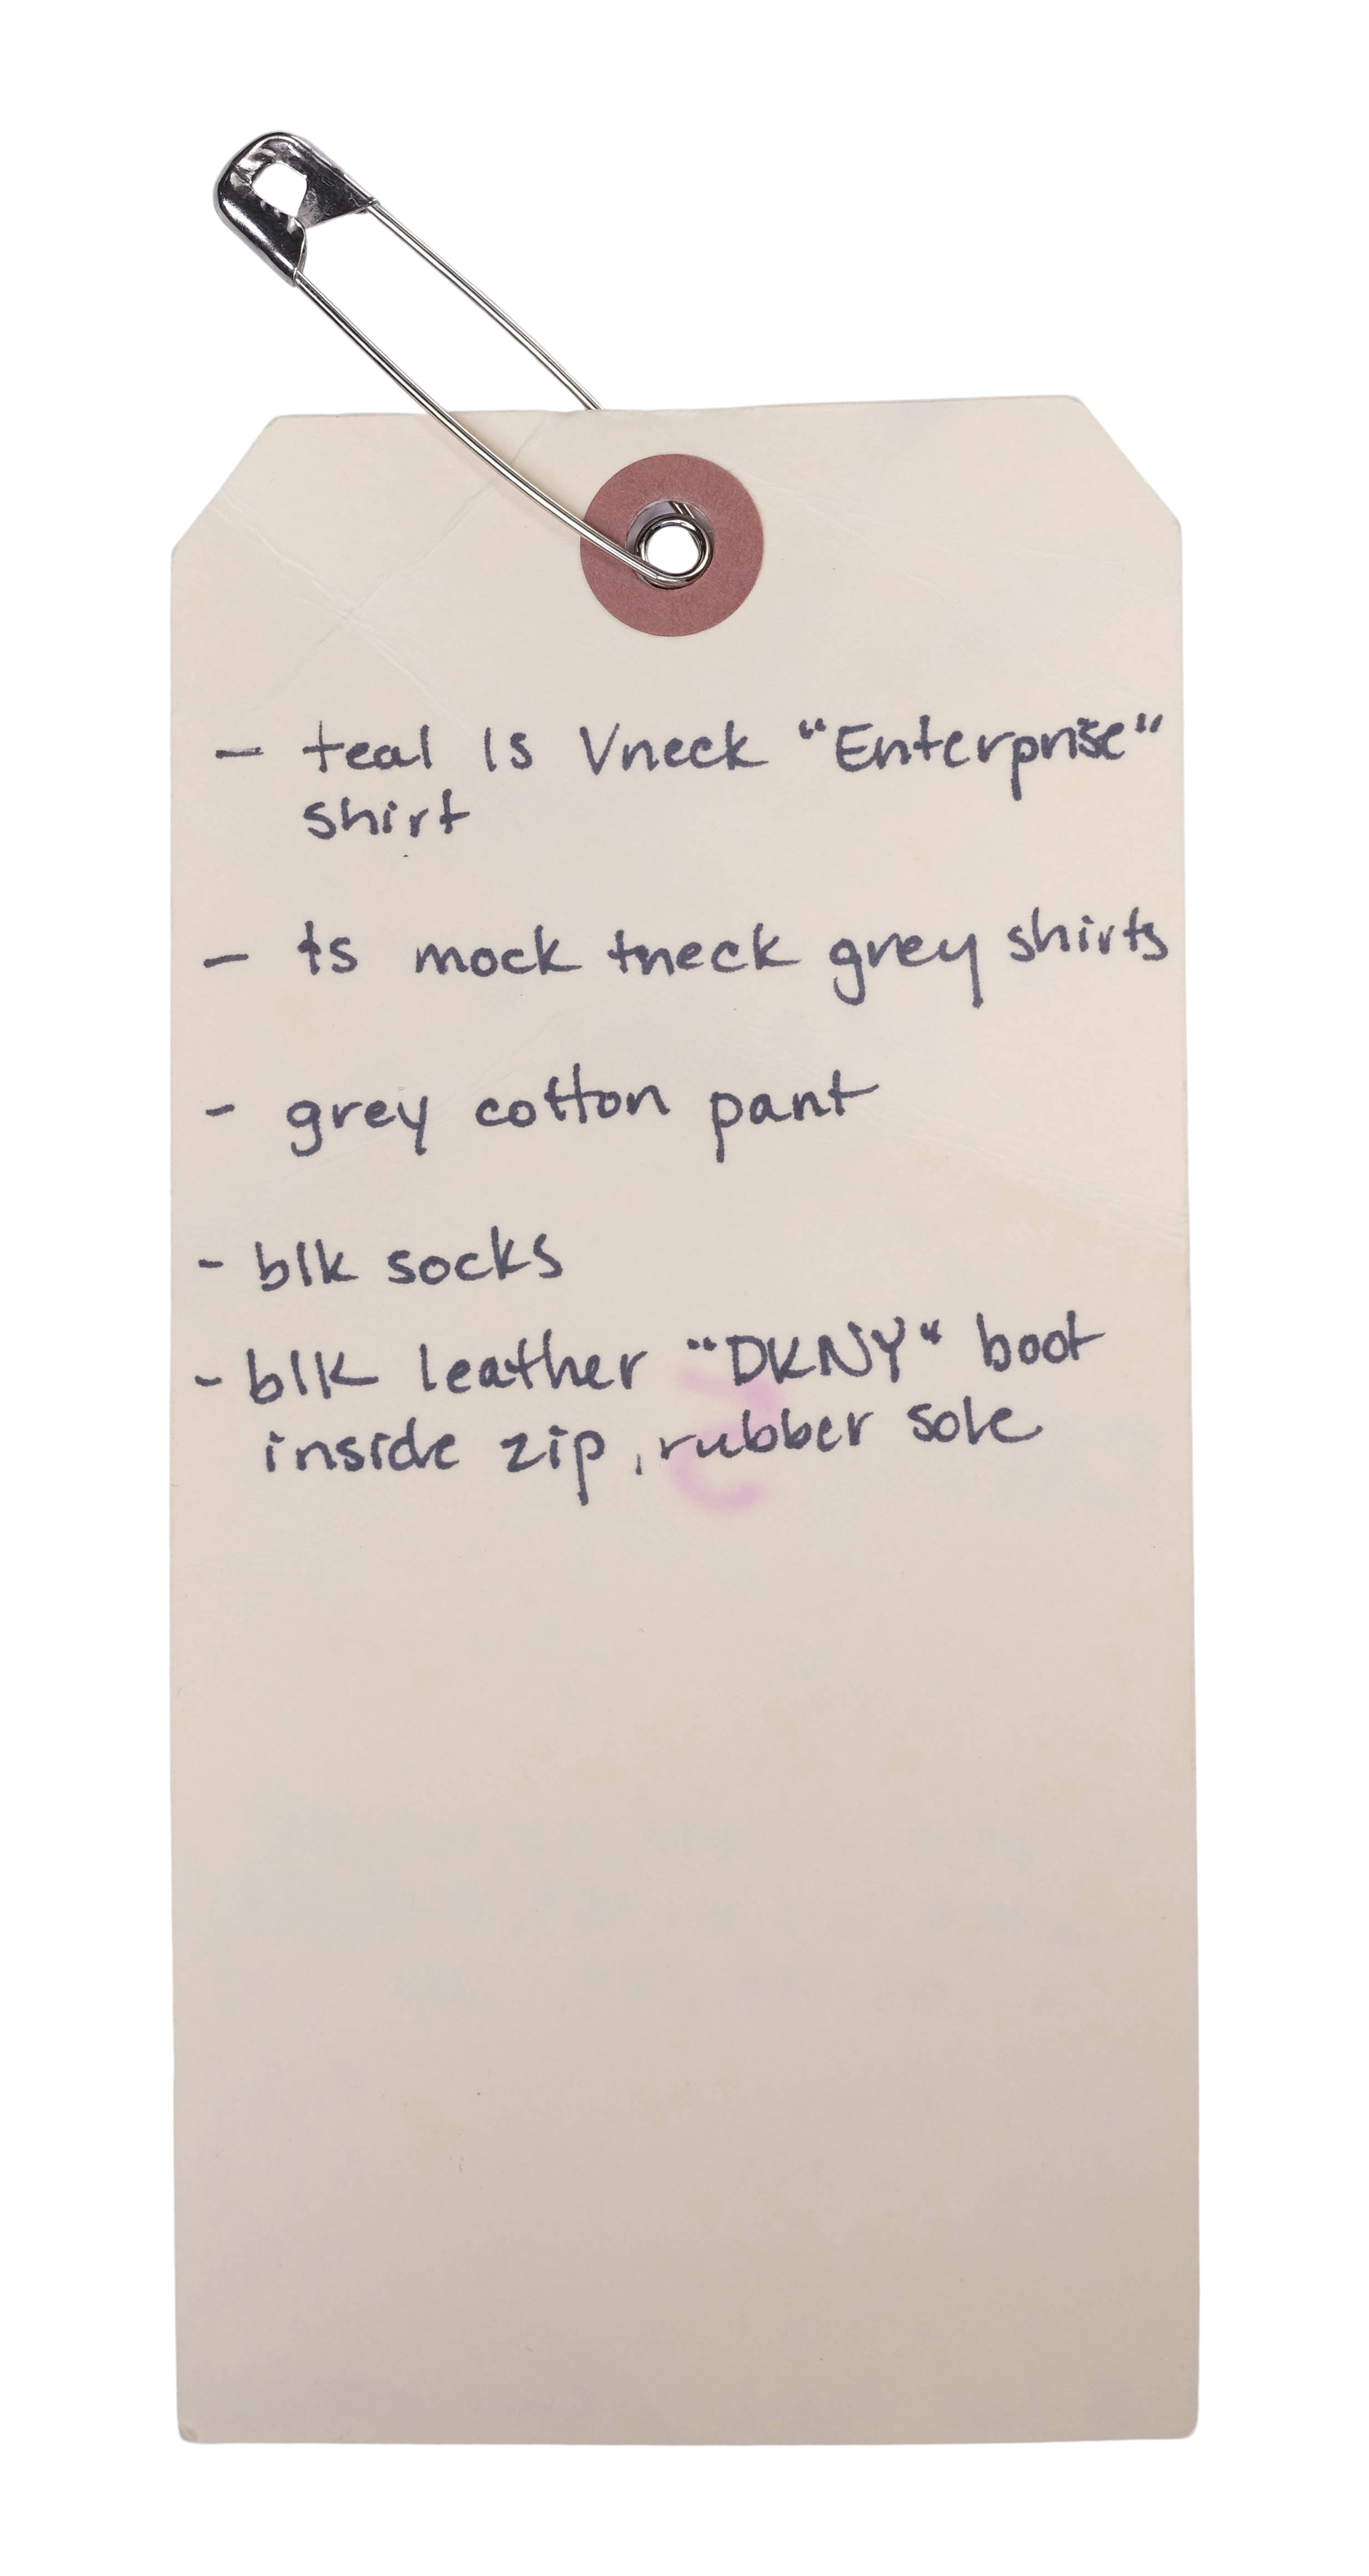 - teal ls Vneck "Enterprise"
shirt
- ts mock tneck grey shirts
- grey cotton pant
- blk socks
- blk leather "DKNY" boot
inside zip, rubber sole